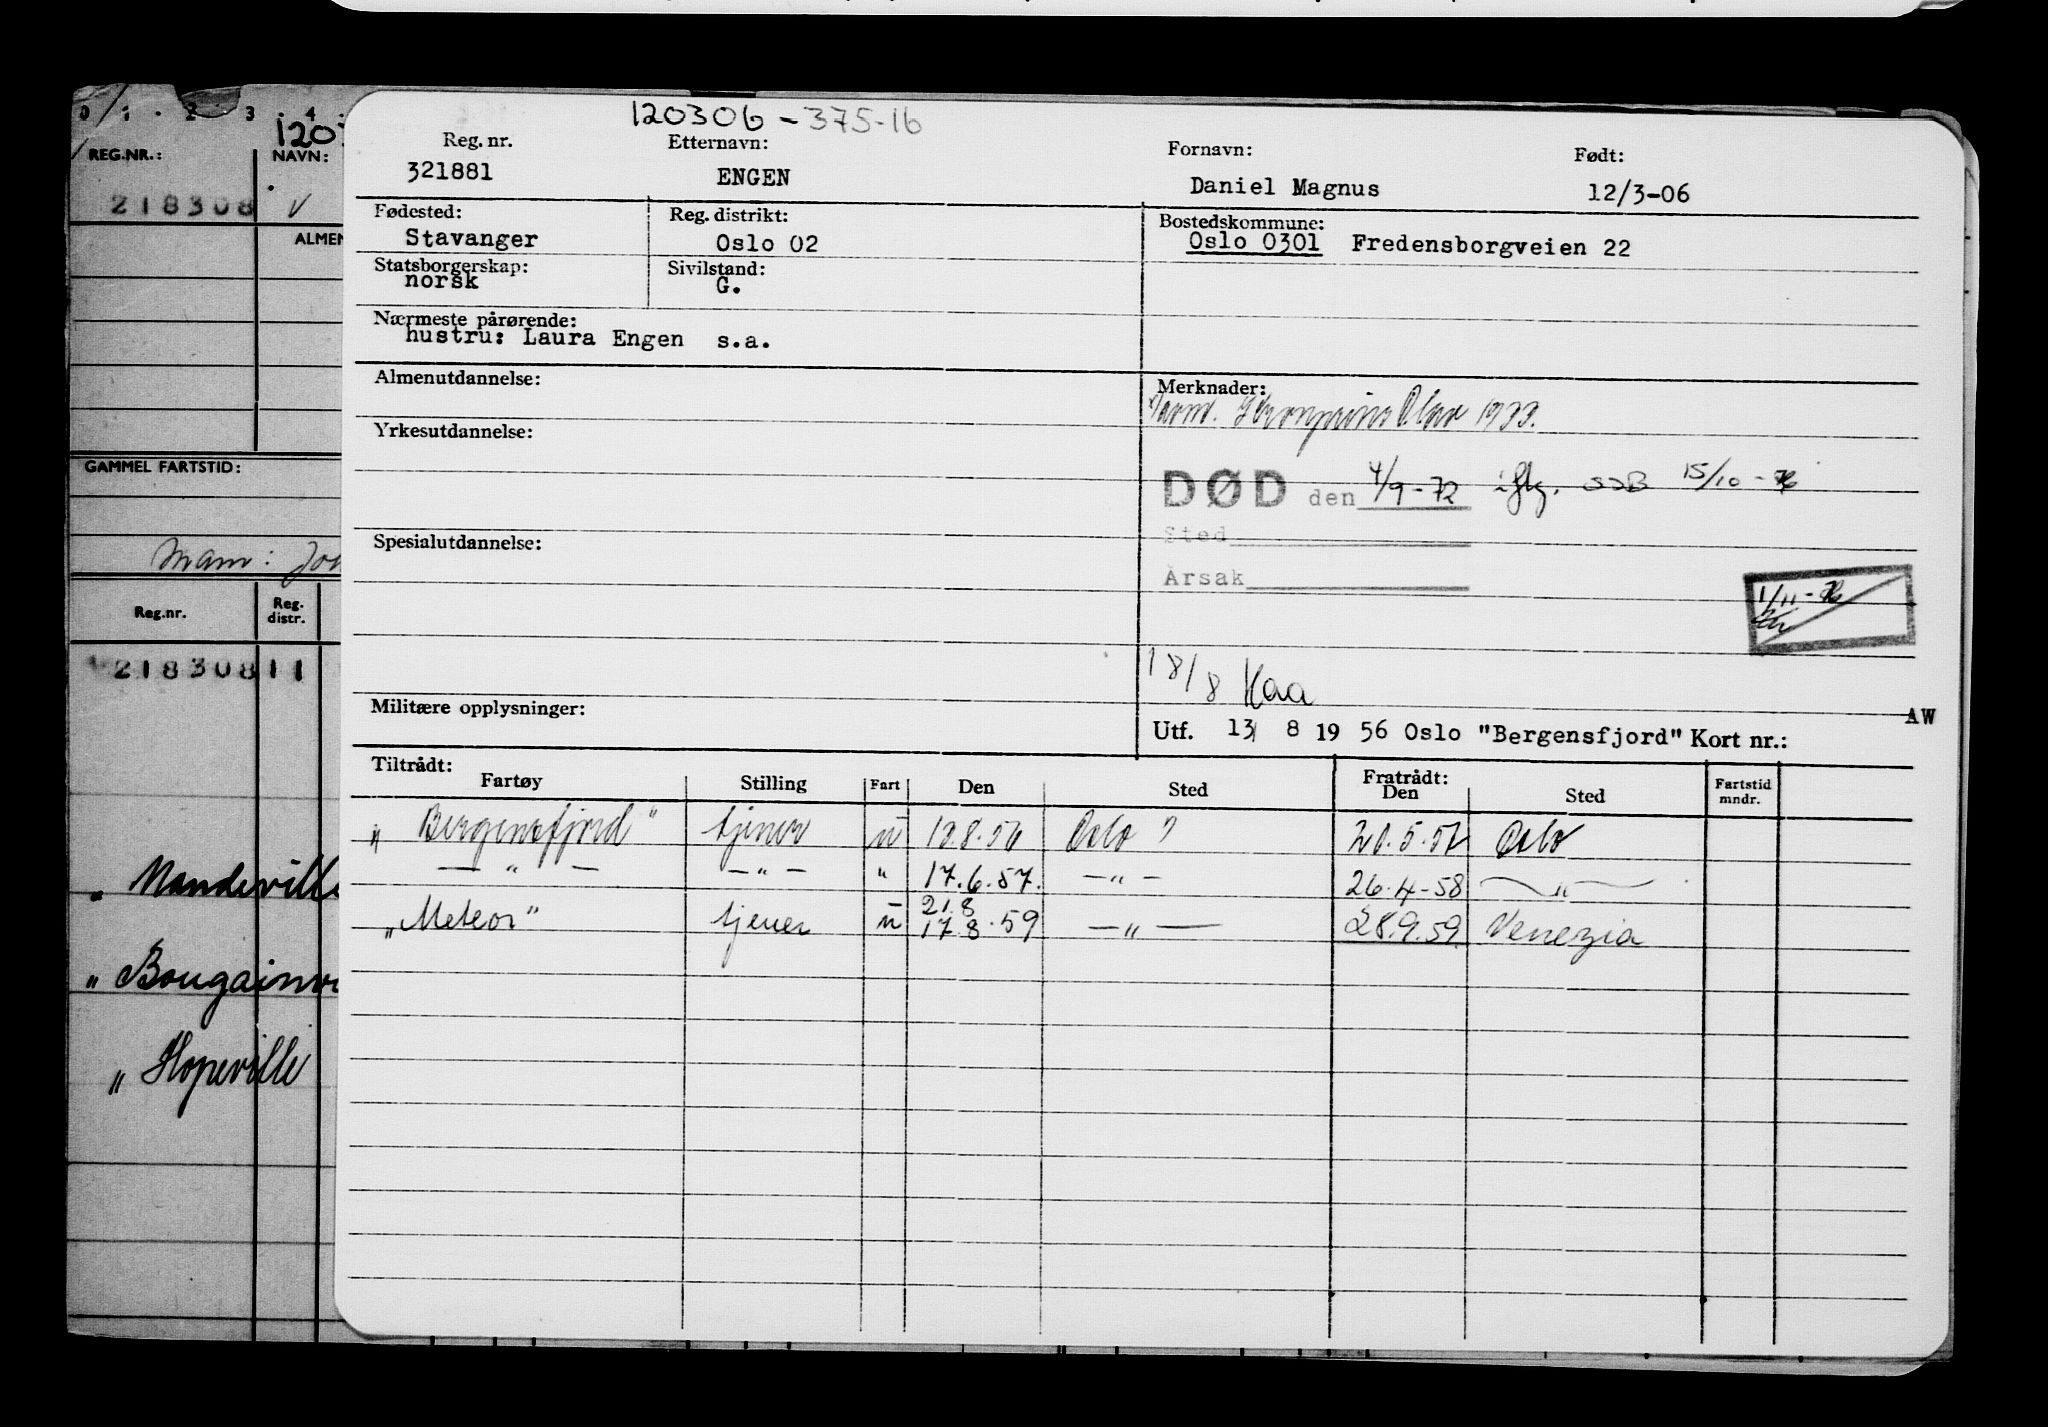 0 1 2 3 4
120
REG.NR.: NAVN:
218308 v
ALMEN
GAMMEL FARTSTID:
Mam:
Reg.nr. Reg. distr.
21830811
"Mandeville
"Bougainvi
"Hopeville
120306-375-16
Reg. nr. Etternavn: Fornavn: Født:
321881 ENGEN Daniel Magnus 12/3-06
Fødested: Reg. distrikt: Bostedskommune:
Stavanger Oslo 02 Oslo 0301 Fredensborgveien 22
Statsborgerskap: Sivilstand:
norsk G.
Nærmeste pårørende:
hustru: Laura Engen s.a.
Almenutdannelse: Merknader:
Kronprins Olav 1933.
Yrkesutdannelse:
DØD den 4/9-72 iflg. SSB 15/10-
Sted
Spesialutdannelse:
Årsak
1/11-
18/8 Kaa
Militære opplysninger: AW
Utf. 13/ 8 19 56 Oslo "Bergensfjord" Kort nr.:
Tiltrådt: Fratrådt:
Fartøy Stilling Fart Den Sted Den Sted Fartstid mndr.
"Bergensfjord" tjener u 13.8.56 Oslo 21.5.57 Oslo
— " — — " — " 17.6.57. — " — 26.4-58 — " —
21.8
"Meteor" tjener u 17.8.59 — " — 28.9.59 Venezia